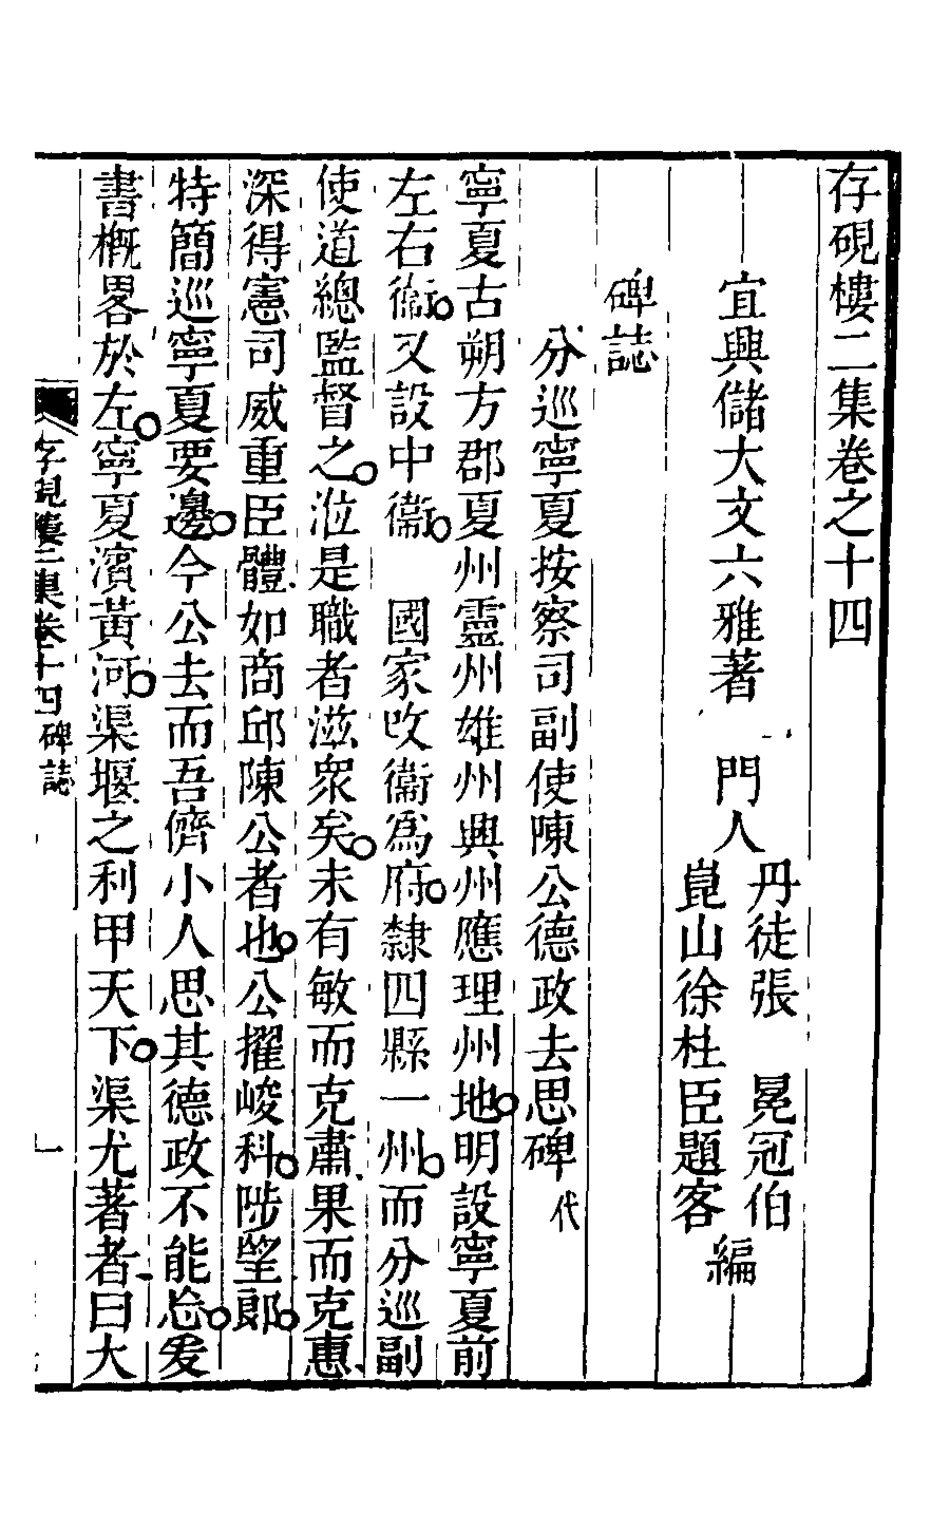 存硯樓二集卷之十四
宜興儲大文六雅著　門人
丹徒張　冕冠伯
崑山徐杜臣題客
編
碑誌
分巡寧夏按察司副使陳公德政去思碑代
寧夏古朔方郡夏州靈州雄州興州應理州地明設寧夏前
左右衞又設中衞　國家改衞爲府隸四縣一州而分巡副
使道總監督之涖是職者滋衆矣未有敏而克肅果而克惠
深得憲司威重臣體如商邱陳公者也公擢峻科陟望郎
特簡巡寧夏要邊今公去而吾儕小人思其德政不能忘爰
書槪畧於左寧夏濱黃河渠堰之利甲天下渠尤著者曰大
存硯樓二集卷十四　碑誌　一